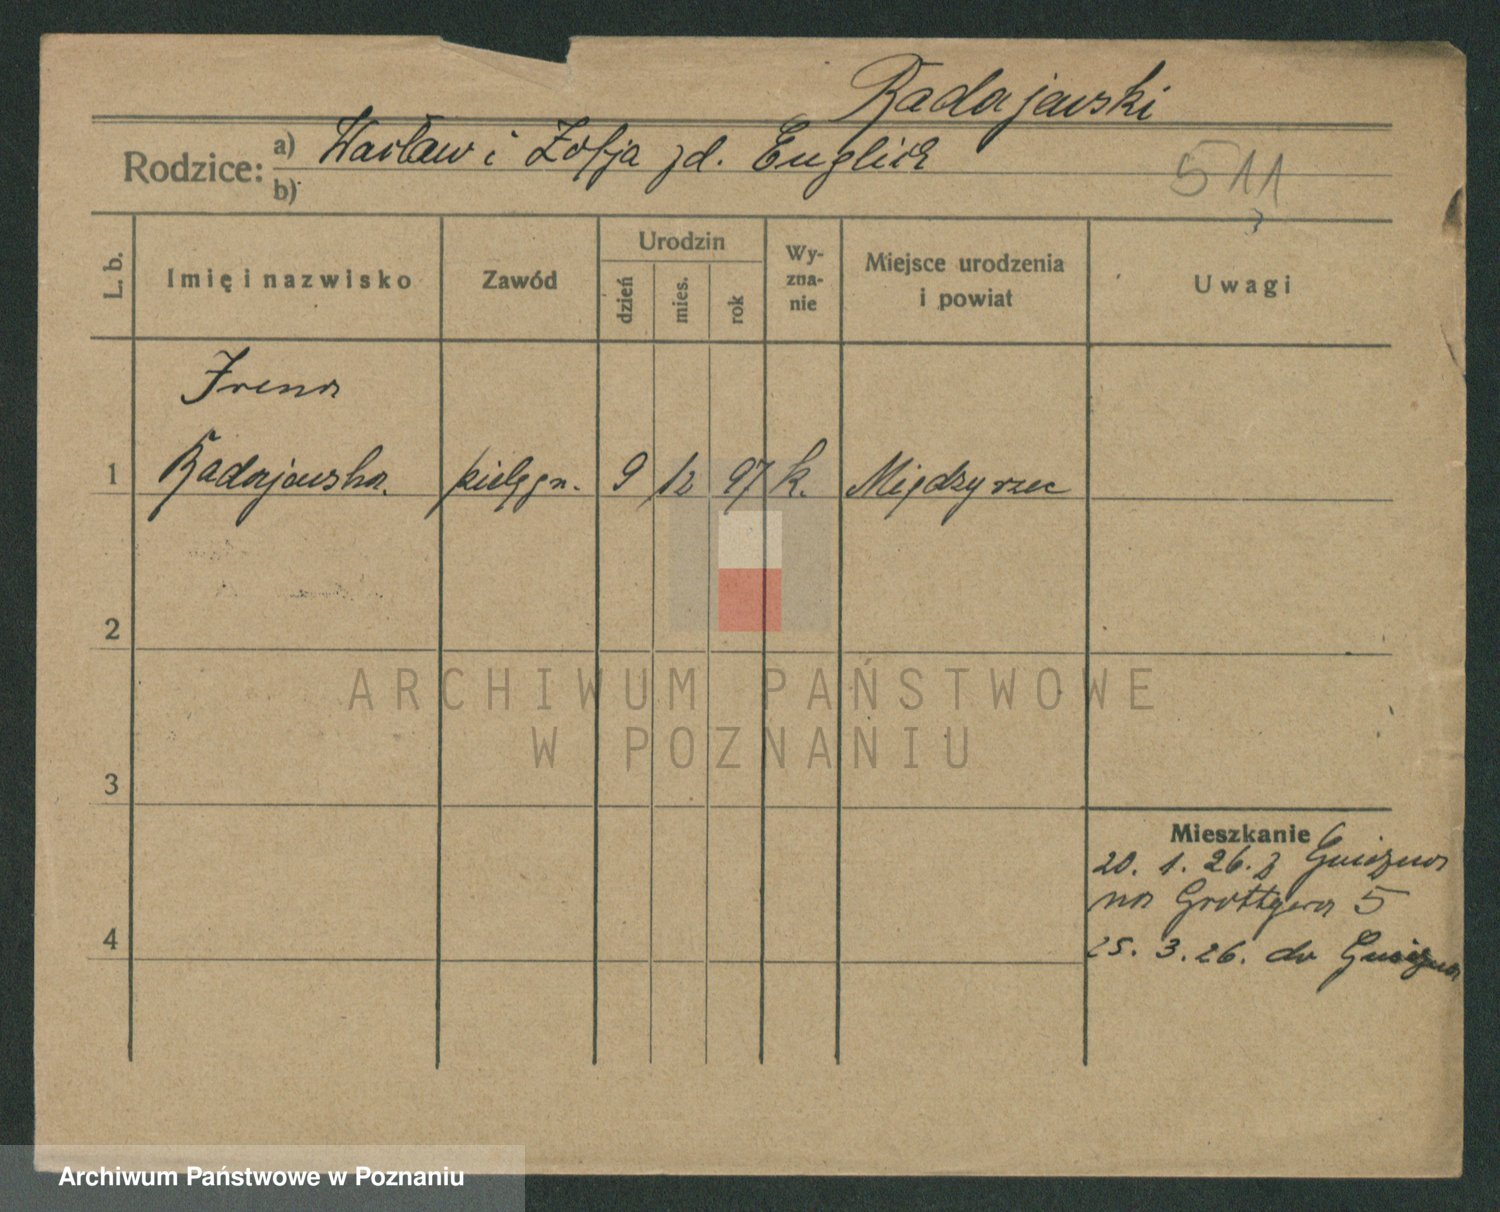 Radajewski
Rodzice: a) Wacław i Zofja zd. Englich
b)
511
L. b.
Imię i nazwisko
Zawód
Urodzin
dzień
mies.
rok
Wy-
zna-
nie
Miejsce urodzenia
i powiat
Uwagi
Irena
1 Radajewska. pielęgn. 9 12 97 k. Międzyrzec
2
3
4
Mieszkanie
20. 1. 26. z Gniezna
na Grottgera 5
25. 3. 26. do Gniezna
ARCHIWUM PAŃSTWOWE
W POZNANIU
Archiwum Państwowe w Poznaniu